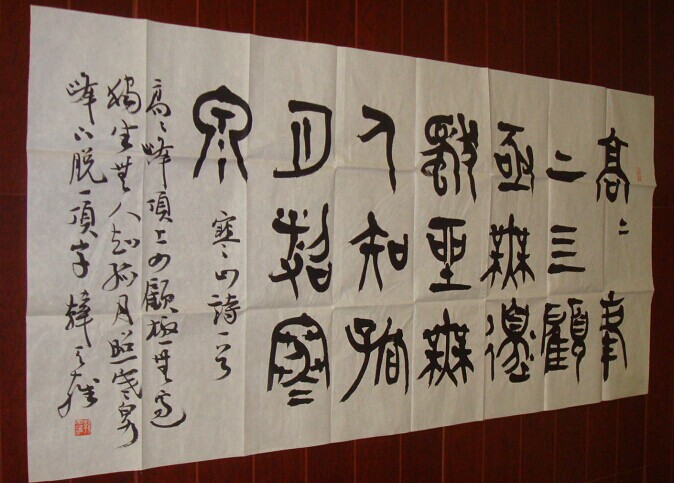 高〻峯
上四顧
極無邊
獨坐無
人知孤
月照寒
泉
寒山詩一首
高〻峰頂上四顧極無邊
獨坐無人知孤月照寒泉
峰下脱一頂字 韓天雍